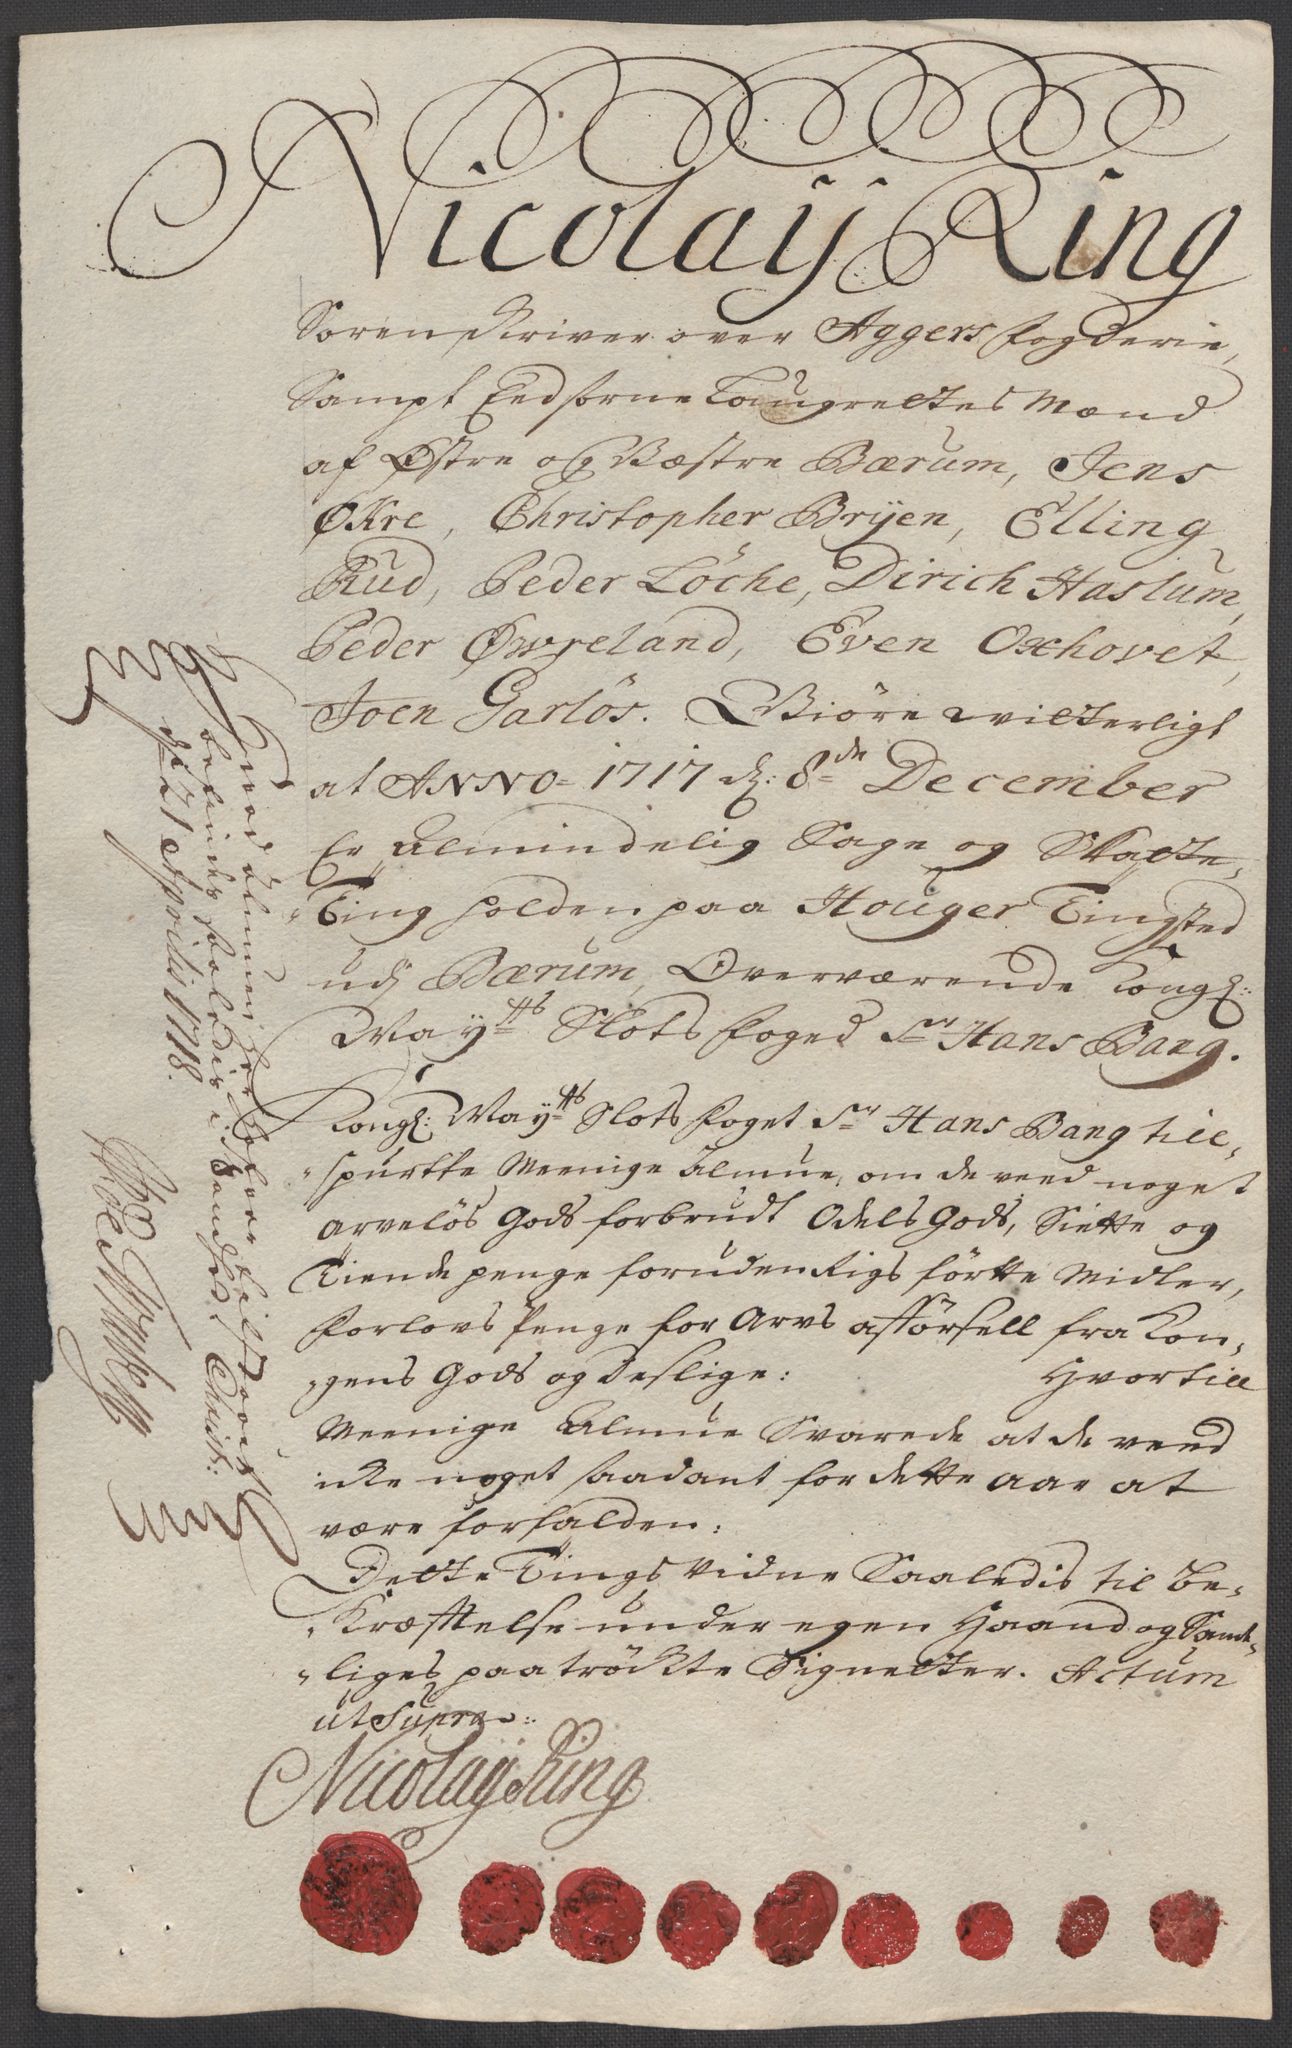 Nicolaÿ Ring
Sorenskriver over Aggers fogderie,
Sampt Eedsorne Laugrettes Mænd
af Østre og Væstre Bærum, Jens
Økre, Christopher Brÿen, Elling
Rud, Peder Löche, Dirich Haslum,
Peder Øvreland, Even Oxhovet,
Joen Garlös. Giöre witterligt
at ANNO 1717 d: 8de December
Er Almindelig Sage og Skatte,
Ting holden paa Houger Tingsted
udj Bærum, Overværende Kongl:
Maytts Slots foged Sr Hans Bang.
Kongl: Maytts Slots foget Sr Hans Bang till,
spurtte Meenige Almue, om de veed noget
Arvelös Gods forbrudt Odels Gods, Siette og
Tiende penge foruden Rigs förtte Midler,
forlovs Penge for Arvs afförsell fra Kon,
gens Gods og deslige: Hvortill
Meenige Almue Svarede at de veed
icke noget saadant for dette aar at
være forfalden:
Dette Tings Vidne Saaledis til Be,
Kræfttelse under egen Haand og Samt,
liges paatröckte Signetter. Actum
ut Supra:
Nicolaÿ Ring
befindes saaledis
d: 21 Aprilis 1718.